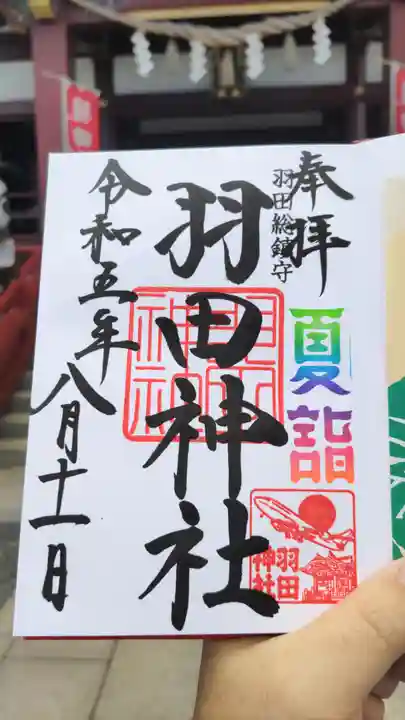 奉拝
羽田総鎮守
夏詣
羽田神社
羽田神社
羽田
神社
令和五年
八月十一日